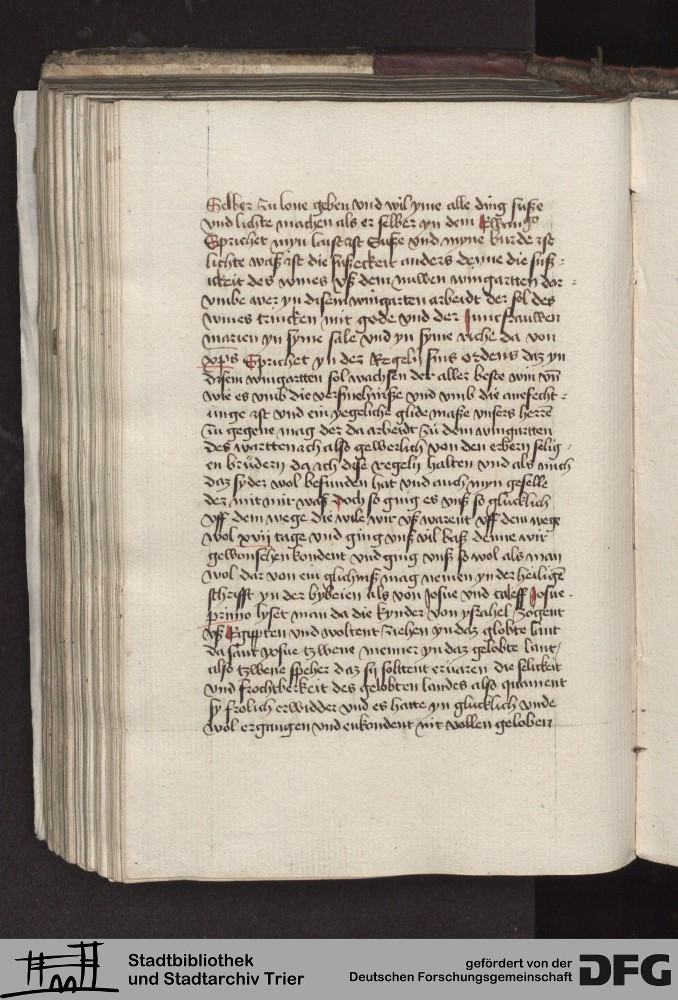 Selber zu lone geben vnd wil yme alle ding susse
vnd lichte machen als er selber yn dem Ewango
Sprichet myn last ist Susse vnd myne burde ist
lichte waß ist die susseckeit anders denne die suß-
ickeit des wines vß dem nuwen wingartten dor-
vmbe wer yn disem wingarten arbeidt der sol des
wines trincken mit gode vnd der Junckfrauwen
marien yn syme sale vnd yn syme riche da von
xps Sprichet yn der Regeln sins ordens daz yn
disem wingartten sol wachsen der aller beste win vn
wie es vmb die vnd vmb die anefecht-
unge ist vnd ein yegeliche glide masse vnsers herre
zu gegene mag der da arbeidt zu dem wingartten
des warttenach also gewerlich von den erbern selig-
en brudern da ich dise regeln halten vnd als mich
daz syder wol befunden hat vnd auch myn geselle
der mit mir waß Doch so ging es vnß so glucklich
vff dem wege die wile wir vß warent vff dem wege
wol xvij tage vnd ging vnß vil baß denne wir
gewonschen kondent vnd ging vnß so wol als man
wol dar von ein glichniß mag nemen yn der heilige
schrifft yn der bybelen als von Josue vnd caleff Josue
primo lyset man da die kynder von ysrahel zogent
vß Egipten vnd woltent ziehen yn daz globte lant
da sant Josue tzwene menner yn daz gelobte lant/
also tzwene speher daz sy solttent ervaren die selickeit
vnd frochtberkeit des gelobten landes also quament
sy frolich erwidder vnd es hatte yn glucklich vnde
wol ergangen vnd enkondent nit vollen geloben
Stadtbibliothek
und Stadtarchiv Trier
gefördert von der
Deutschen Forschungsgemeinschaft
DFG